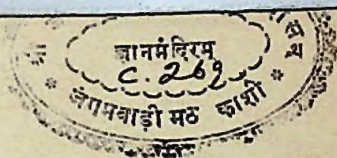 ज्ञानमंदिरम्
C. 269
जंगमवाड़ी मठ काशी